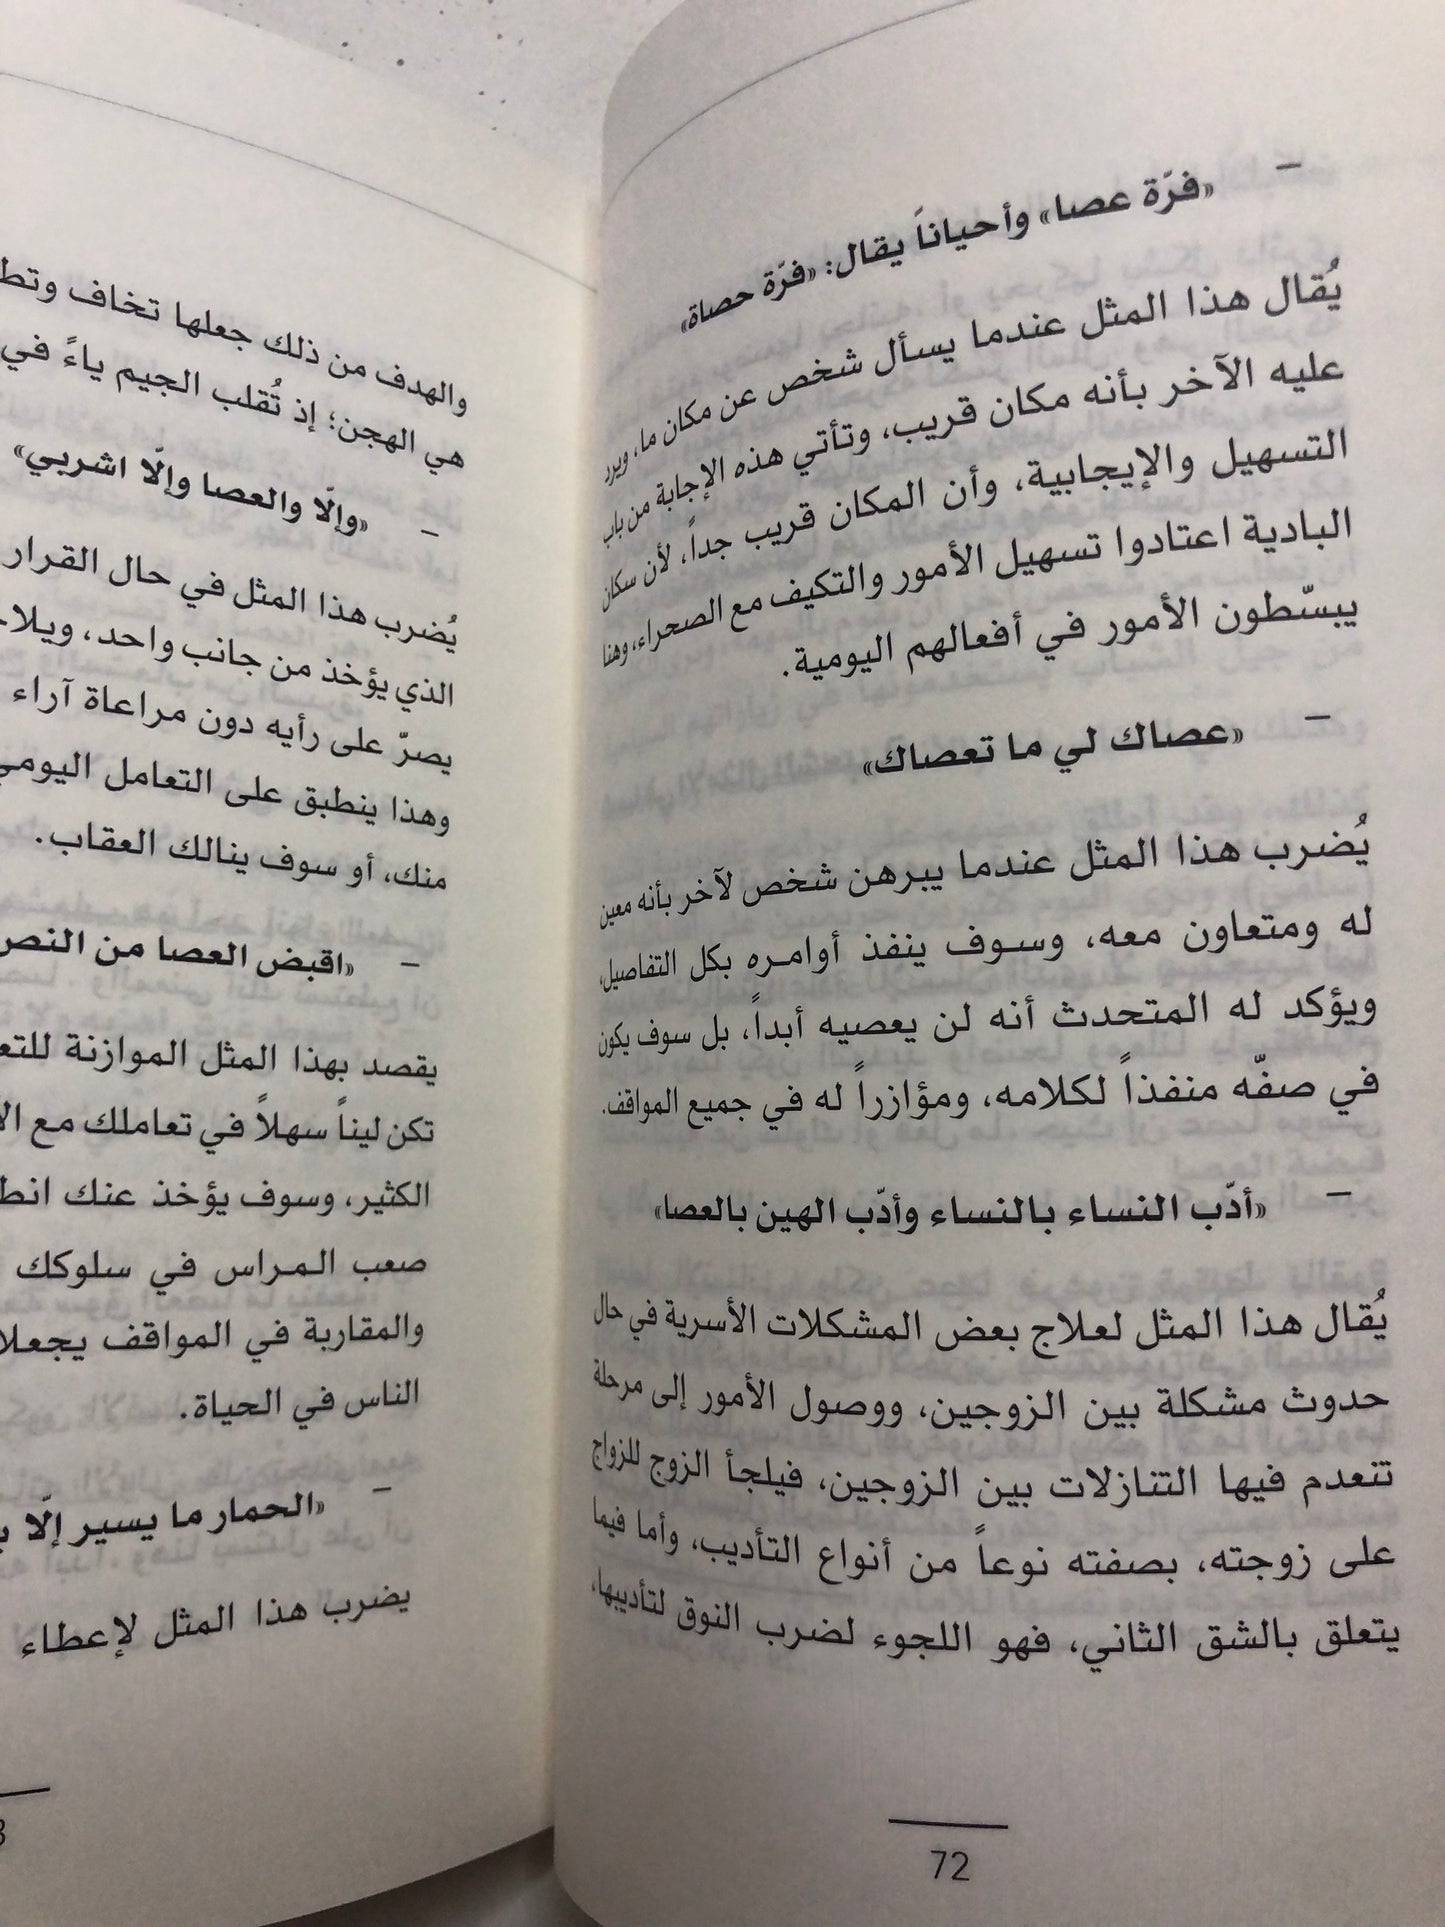 – «فرّة عصا» وأحياناً يقال: «فرّة حصاة»
يُقال هذا المثل عندما يسأل شخص عن مكان ما، ويرد
عليه الآخر بأنه مكان قريب، وتأتي هذه الإجابة من باب
التسهيل والإيجابية، وأن المكان قريب جداً، لأن سكان
البادية اعتادوا تسهيل الأمور والتكيف مع الصحراء، وهنا
يبسّطون الأمور في أفعالهم اليومية.
– «عصاك لي ما تعصاك»
يُضرب هذا المثل عندما يبرهن شخص لآخر بأنه معين
له ومتعاون معه، وسوف ينفذ أوامره بكل التفاصيل،
ويؤكد له المتحدث أنه لن يعصيه أبداً، بل سوف يكون
في صفّه منفذاً لكلامه، ومؤازراً له في جميع المواقف.
– «أدّب النساء بالنساء وأدّب الهين بالعصا»
يُقال هذا المثل لعلاج بعض المشكلات الأسرية في حال
حدوث مشكلة بين الزوجين، ووصول الأمور إلى مرحلة
تنعدم فيها التنازلات بين الزوجين، فيلجأ الزوج للزواج
على زوجته، بصفته نوعاً من أنواع التأديب، وأما فيما
يتعلق بالشق الثاني، فهو اللجوء لضرب النوق لتأديبها،
72
والهدف من ذلك جعلها تخاف
هي الهجن؛ إذ تُقلب الجيم ياءً في
– «وإلّا والعصا وإلّا اشربي»
يُضرب هذا المثل في حال القرار
الذي يؤخذ من جانب واحد،
يصرّ على رأيه دون مراعاة آراء
وهذا ينطبق على التعامل اليومي
منك، أو سوف ينالك العقاب.
– «اقبض العصا من
يقصد بهذا المثل الموازنة
تكن ليناً سهلاً في تعاملك مع
الكثير، وسوف يؤخذ عنك
صعب المراس في سلوكك
والمقاربة في المواقف
الناس في الحياة.
– «الحمار ما يسير إلّا
يضرب هذا المثل لإعطاء